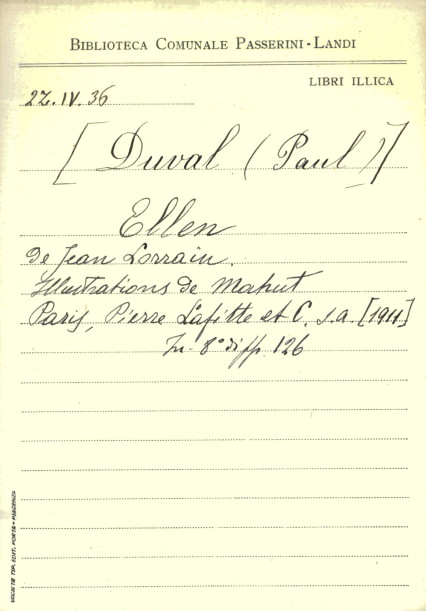 BIBLIOTECA COMUNALE PASSERINI-LANDI
LIBRI ILLICA
22.IV.36
[Duval (Paul)]
Ellen
de Jean Lorrain.
Illustrations de Mahut
Paris, Pierre Lafitte et C. s.a. [1911]
In-8° di pp. 126
SOCIETÀ TIP. EDIT. PORTA - PIACENZA